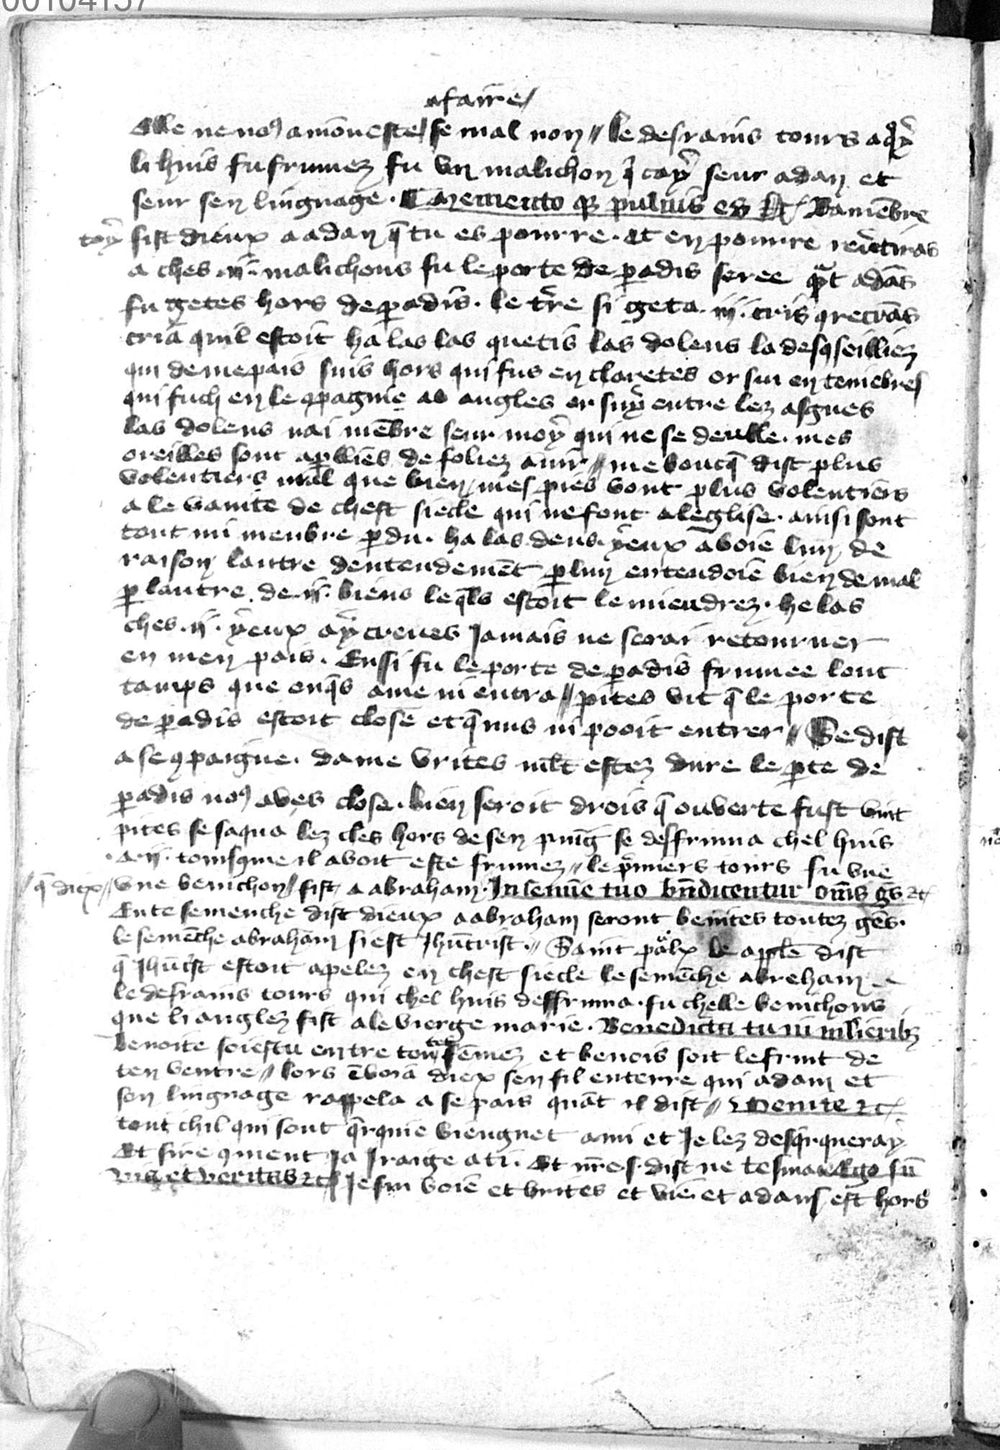 00104157
a faire
Elle ne no9 amōneste se mal non // le desrains tours a q̄y
li huis fu frumez fu vn malichon q̄ cay seur adan et
seur sen lingnage . Memento q2 puluis es &c Ramēbre
toy fist dieux a adan q̄ tu es pourre . et en pourre reūtiras
a ches .ij. malichons fu le porte de padis seree q̄t adās
fu getes hors de padis . le tr̄re si geta .iij. cris
cria quil estoit ha las las quetis las dolens la desqseilliez
qui de me pais suis hors qui fus en claretes or sui en tenebres
qui fuch en le qpagnie as angles or suy entre lez asgnes
las dolens nai mēbre seur moy qui ne se deulle . mes
oreilles sont apllies de foliez air // me boucq̄ dist plus
volentiers mal que bien mes pies vont plus volentiers
a le vanite de chest siecle qui ne font a leglise . ainsi sont
tout mi menbre pdu . ha las deus yeux avoie lun de
raison lautre dentendemēt p lun entendoie bien de mal
p lautre de .ij. biens le q̄ls estoit le mieudrez . helas
ches .ij. yeux ay creues Jamais ne serai retourner
en men pais . Enssi fu le porte de padis frumee lont
tamps que onq̄s ame ni entra // pites vit q̄ le porte
de padis estoit close et q̄ nus ni pooit entrer // Se dist
a se 9paigne . dame vrites mlt estez dure le pte de
padis no9 aves close . bien seroit drois q̄ ouverte fust vint
pites se saqua lez cles hors de sen puig se desfruma chel huis
a .ij. tours que il avoit este frumez // le pmiers tours fu vne
// q̄ diex // vne benichon fist a abraham . In semīe tuo bn̄dicentur om̄s gēs &c
En te semenche dist dieux a abraham seront benites toutez gēs .
le semēche abraham si est Jhūcrist . // Saint pālx le applē dist
q̄ Jhūcst estoit apelez en chest siecle le semēche abreham
le desrains tours qui chel huis deffruma . fu chelle benichons
que li anglez fist a le vierge marie . Benedicta tu in mlierib3
benoite soies tu entre toutez fēmez et benois soit le fruit de
ten ventre // lors ēvoia diex sen fil en terre qui adam et
sen lingnage rappela a se pais quāt il dist // Venite &c
tout chil qui sont q̄rquie viengnet a mi et Je lez desq̄rqueray
Et sire 9ment Ja Iraige a ti . Et nr̄e s. dist ne tesmaie Ego sū
via et veritas &c Je sui voie et vrites et vie . et adans est hors